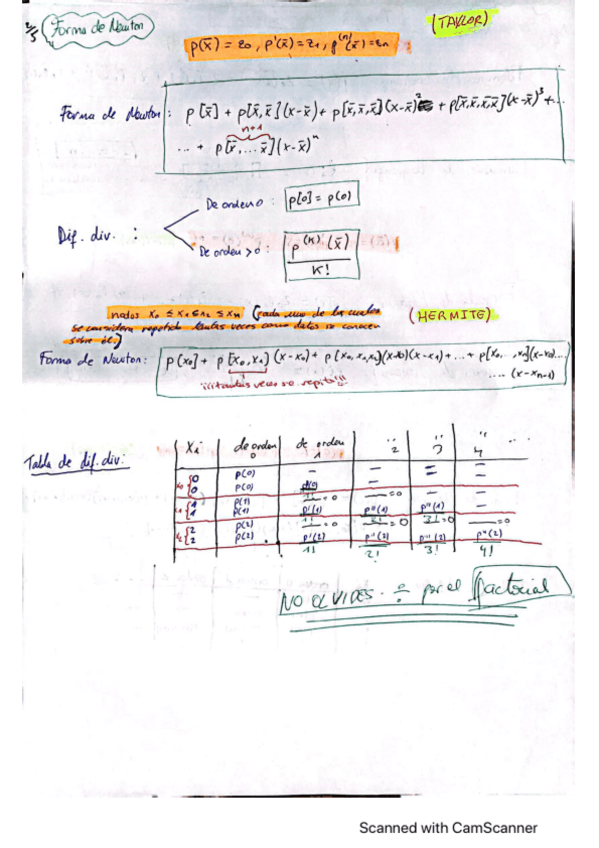 2/5 Forma de Newton
(TAYLOR)
p(x̄) = z0, p'(x̄) = z1, p^(n)(x̄) = zn
Forma de Newton: p[x̄] + p[x̄,x̄](x-x̄) + p[x̄,x̄,x̄](x-x̄)² + p[x̄,x̄,x̄,x̄](x-x̄)³ + ...
n+1
... + p[x̄,...x̄](x-x̄)^n
De orden 0: p[0] = p(0)
Dif. div. :
De orden >0: p^(K)(x̄) / K!
nodos x0 ≤ x1 ≤ x2 ≤ xn (cada uno de los cuales
(HERMITE)
se considera repetido tantas veces como datos se conocen
sobre él)
Forma de Newton: p[x0] + p[x0,x1](x-x0) + p[x0,x1,x2](x-x0)(x-x1) + ... + p[x0,..,xn](x-x0)...
¡¡¡tantas veces se repita!!!
.... (x-xn-1)
Tabla de dif. div:
xi de orden 0 de orden 1 " 2 " 3 " 4 ...
0 p(0) - - - -
0 p(0) p'(0)/1! - - -
1 p(1) =0 =0 - -
1 p(1) p'(1)/1! p''(1)/2! p''(1)/3! -
2 p(2) =0 =0 =0 =0
2 p(2) p'(2)/1! p''(2)/2! p''(2)/3! p''(2)/4!
NO OLVIDES ÷ por el factorial
Scanned with CamScanner